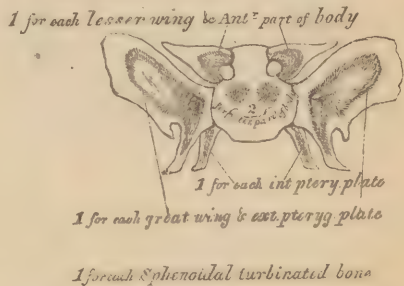 1 for each lesser wing & Antr part of body
2
for
1 for each int pteryg. plate
1 for each great wing & ext. pteryg plate
1 for each Sphenoidal turbinated bone